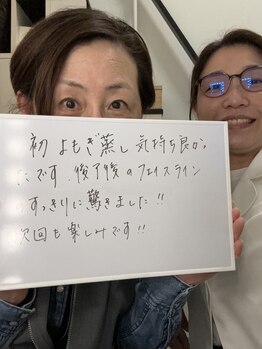 初 よもぎ蒸し 気持ち良かっ
たです. 終了後のフェイスライン
すっきりに驚きました!!
次回も楽しみです!!